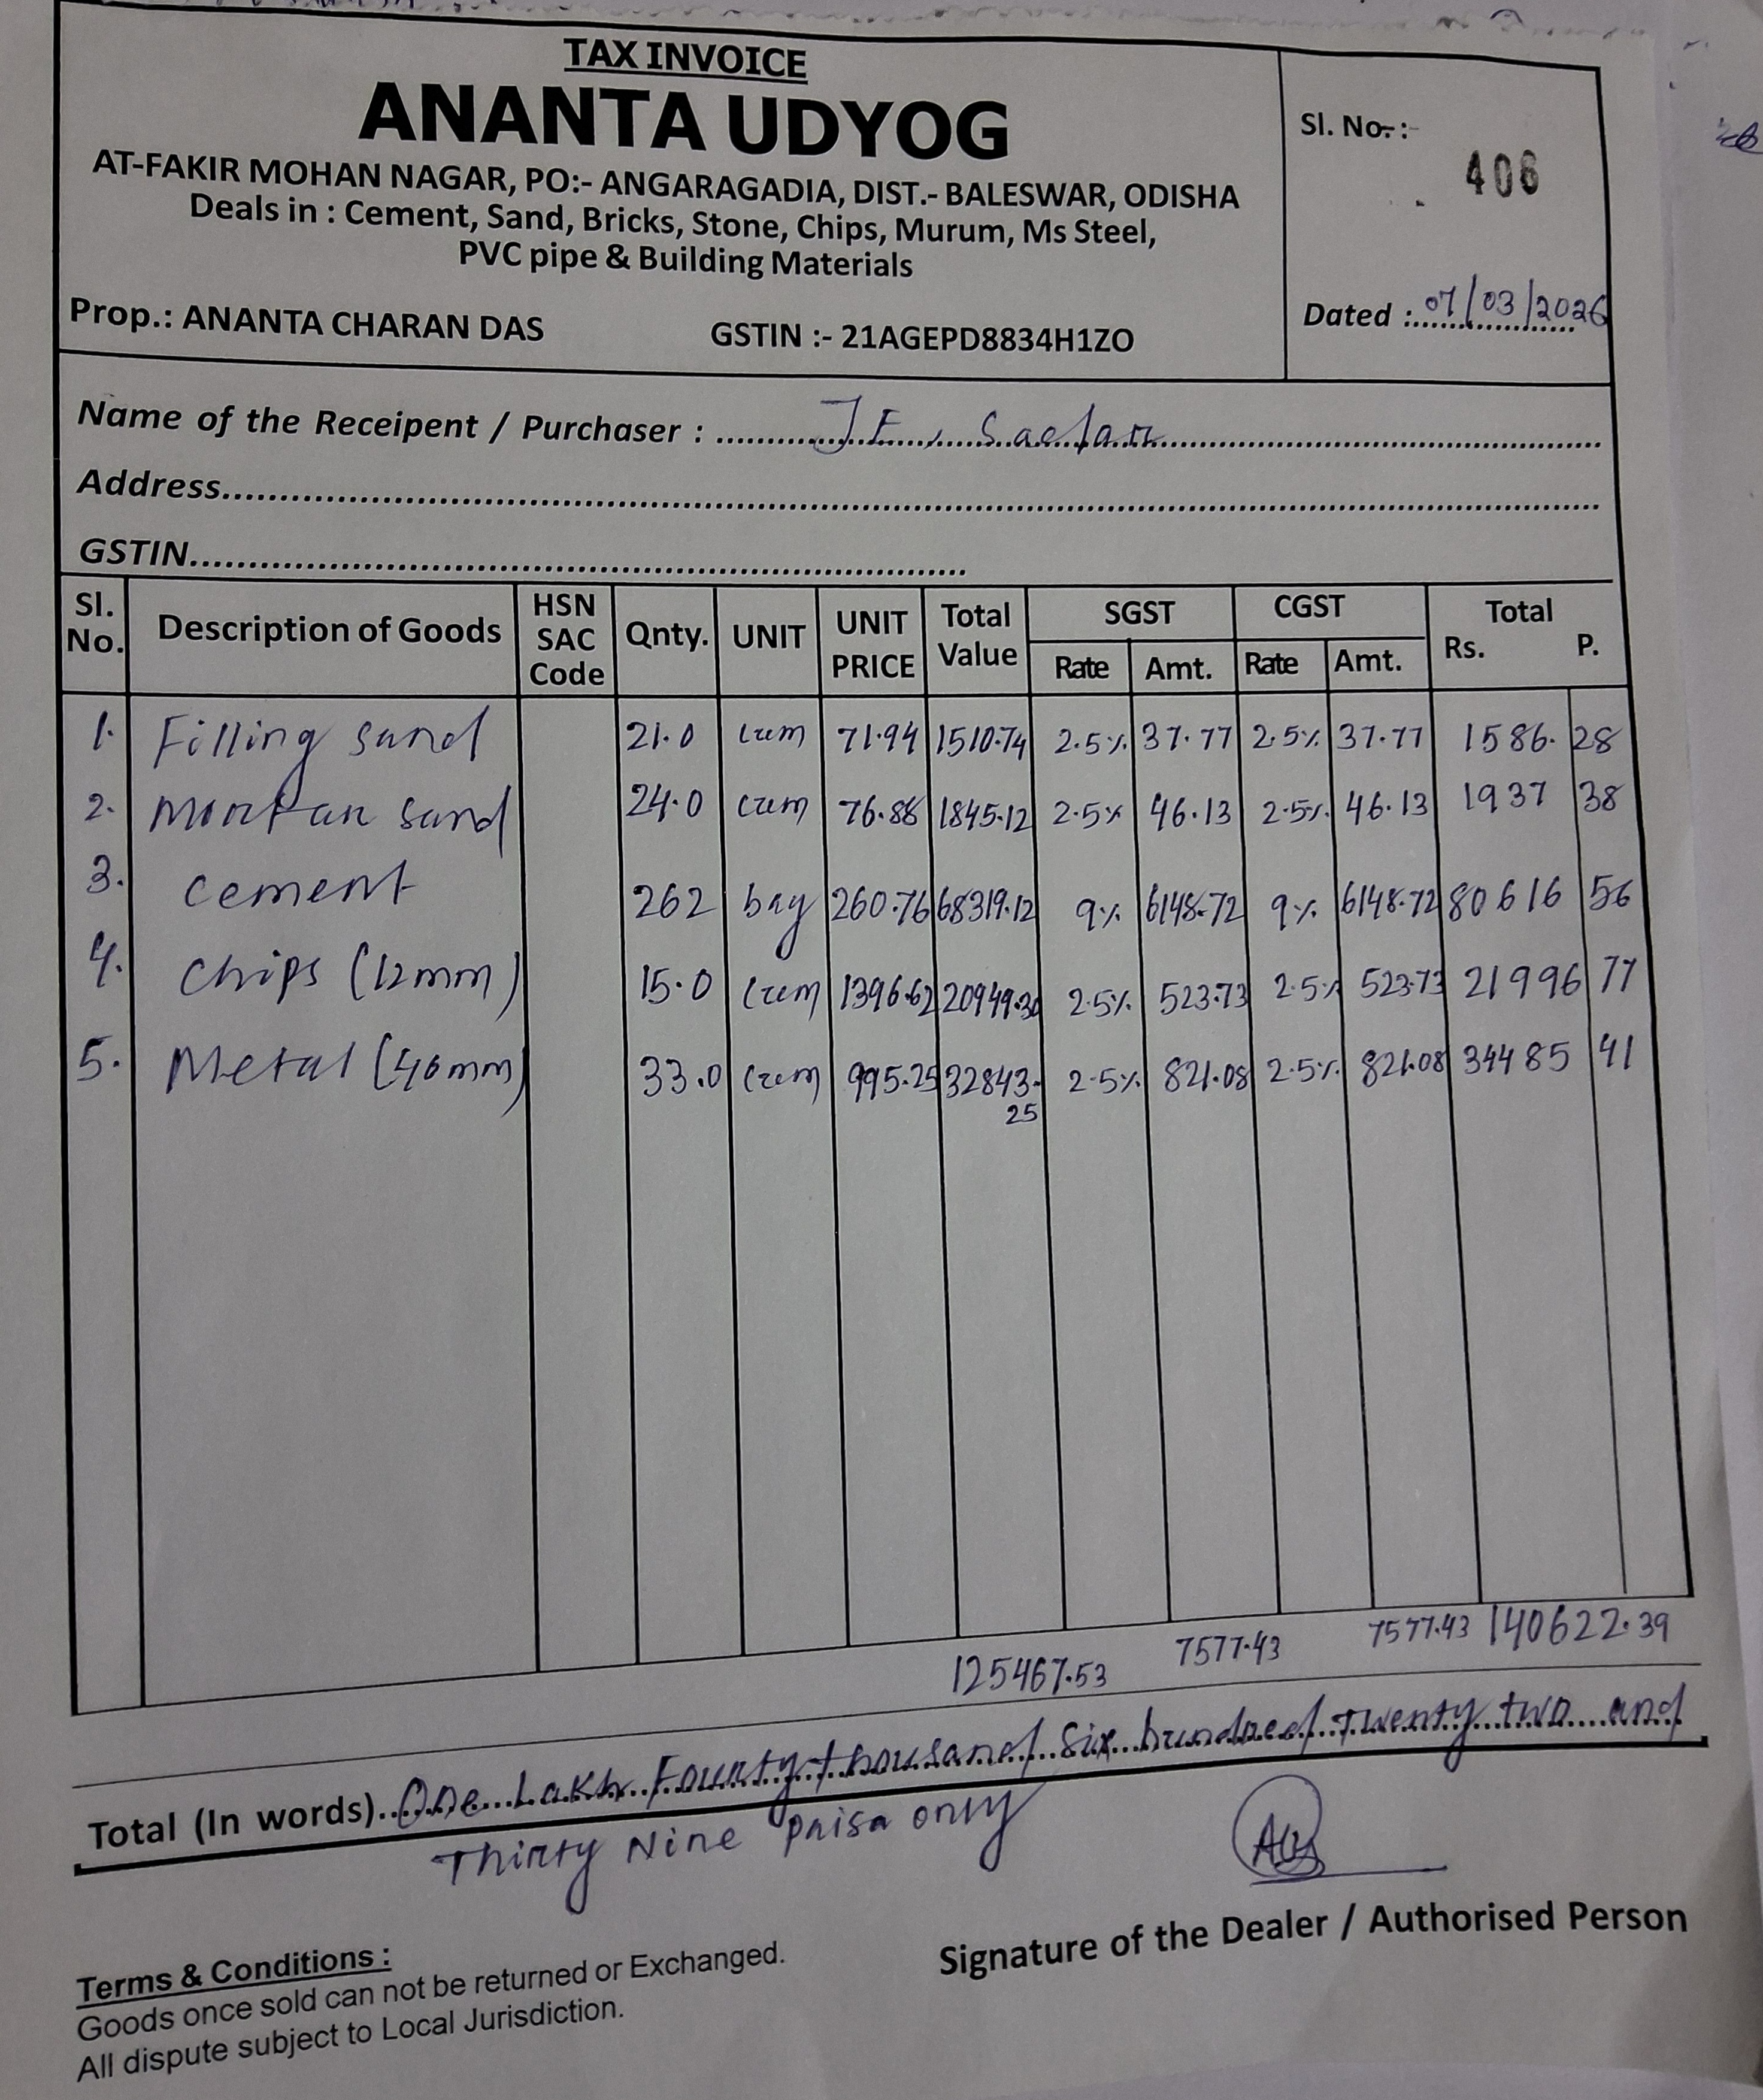 TAX INVOICE
ANANTA UDYOG
AT-FAKIR MOHAN NAGAR, PO:- ANGARAGADIA, DIST.- BALESWAR, ODISHA
Deals in : Cement, Sand, Bricks, Stone, Chips, Murum, Ms Steel,
PVC pipe & Building Materials
Prop.: ANANTA CHARAN DAS GSTIN :- 21AGEPD8834H1ZO
Sl. No. :- 406
Dated : 07/03/2026
Name of the Receipent / Purchaser : J E, Sadar
Address
GSTIN
Sl. No. Description of Goods HSN SAC Code Qnty. UNIT UNIT PRICE Total Value SGST Rate Amt. CGST Rate Amt. Total Rs. P.
1. Filling sand 21.0 cum 71.94 1510.74 2.5% 37.77 2.5% 37.77 1586. 28
2. Mortar sand 24.0 cum 76.88 1845.12 2.5% 46.13 2.5% 46.13 1937 38
3. cement 262 bag 260.76 68319.12 9% 6148.72 9% 6148.72 80616 56
4. chips (12mm) 15.0 cum 1396.62 20949.30 2.5% 523.73 2.5% 523.73 21996 77
5. Metal (40mm) 33.0 cum 995.25 32843.25 2.5% 821.08 2.5% 821.08 34485 41
125467.53 7577.43 7577.43 140622.39
Total (In words) One Lakh Fourty thousand Six hundred Twenty two and
Thirty Nine paisa only
Signature of the Dealer / Authorised Person
Terms & Conditions :
Goods once sold can not be returned or Exchanged.
All dispute subject to Local Jurisdiction.